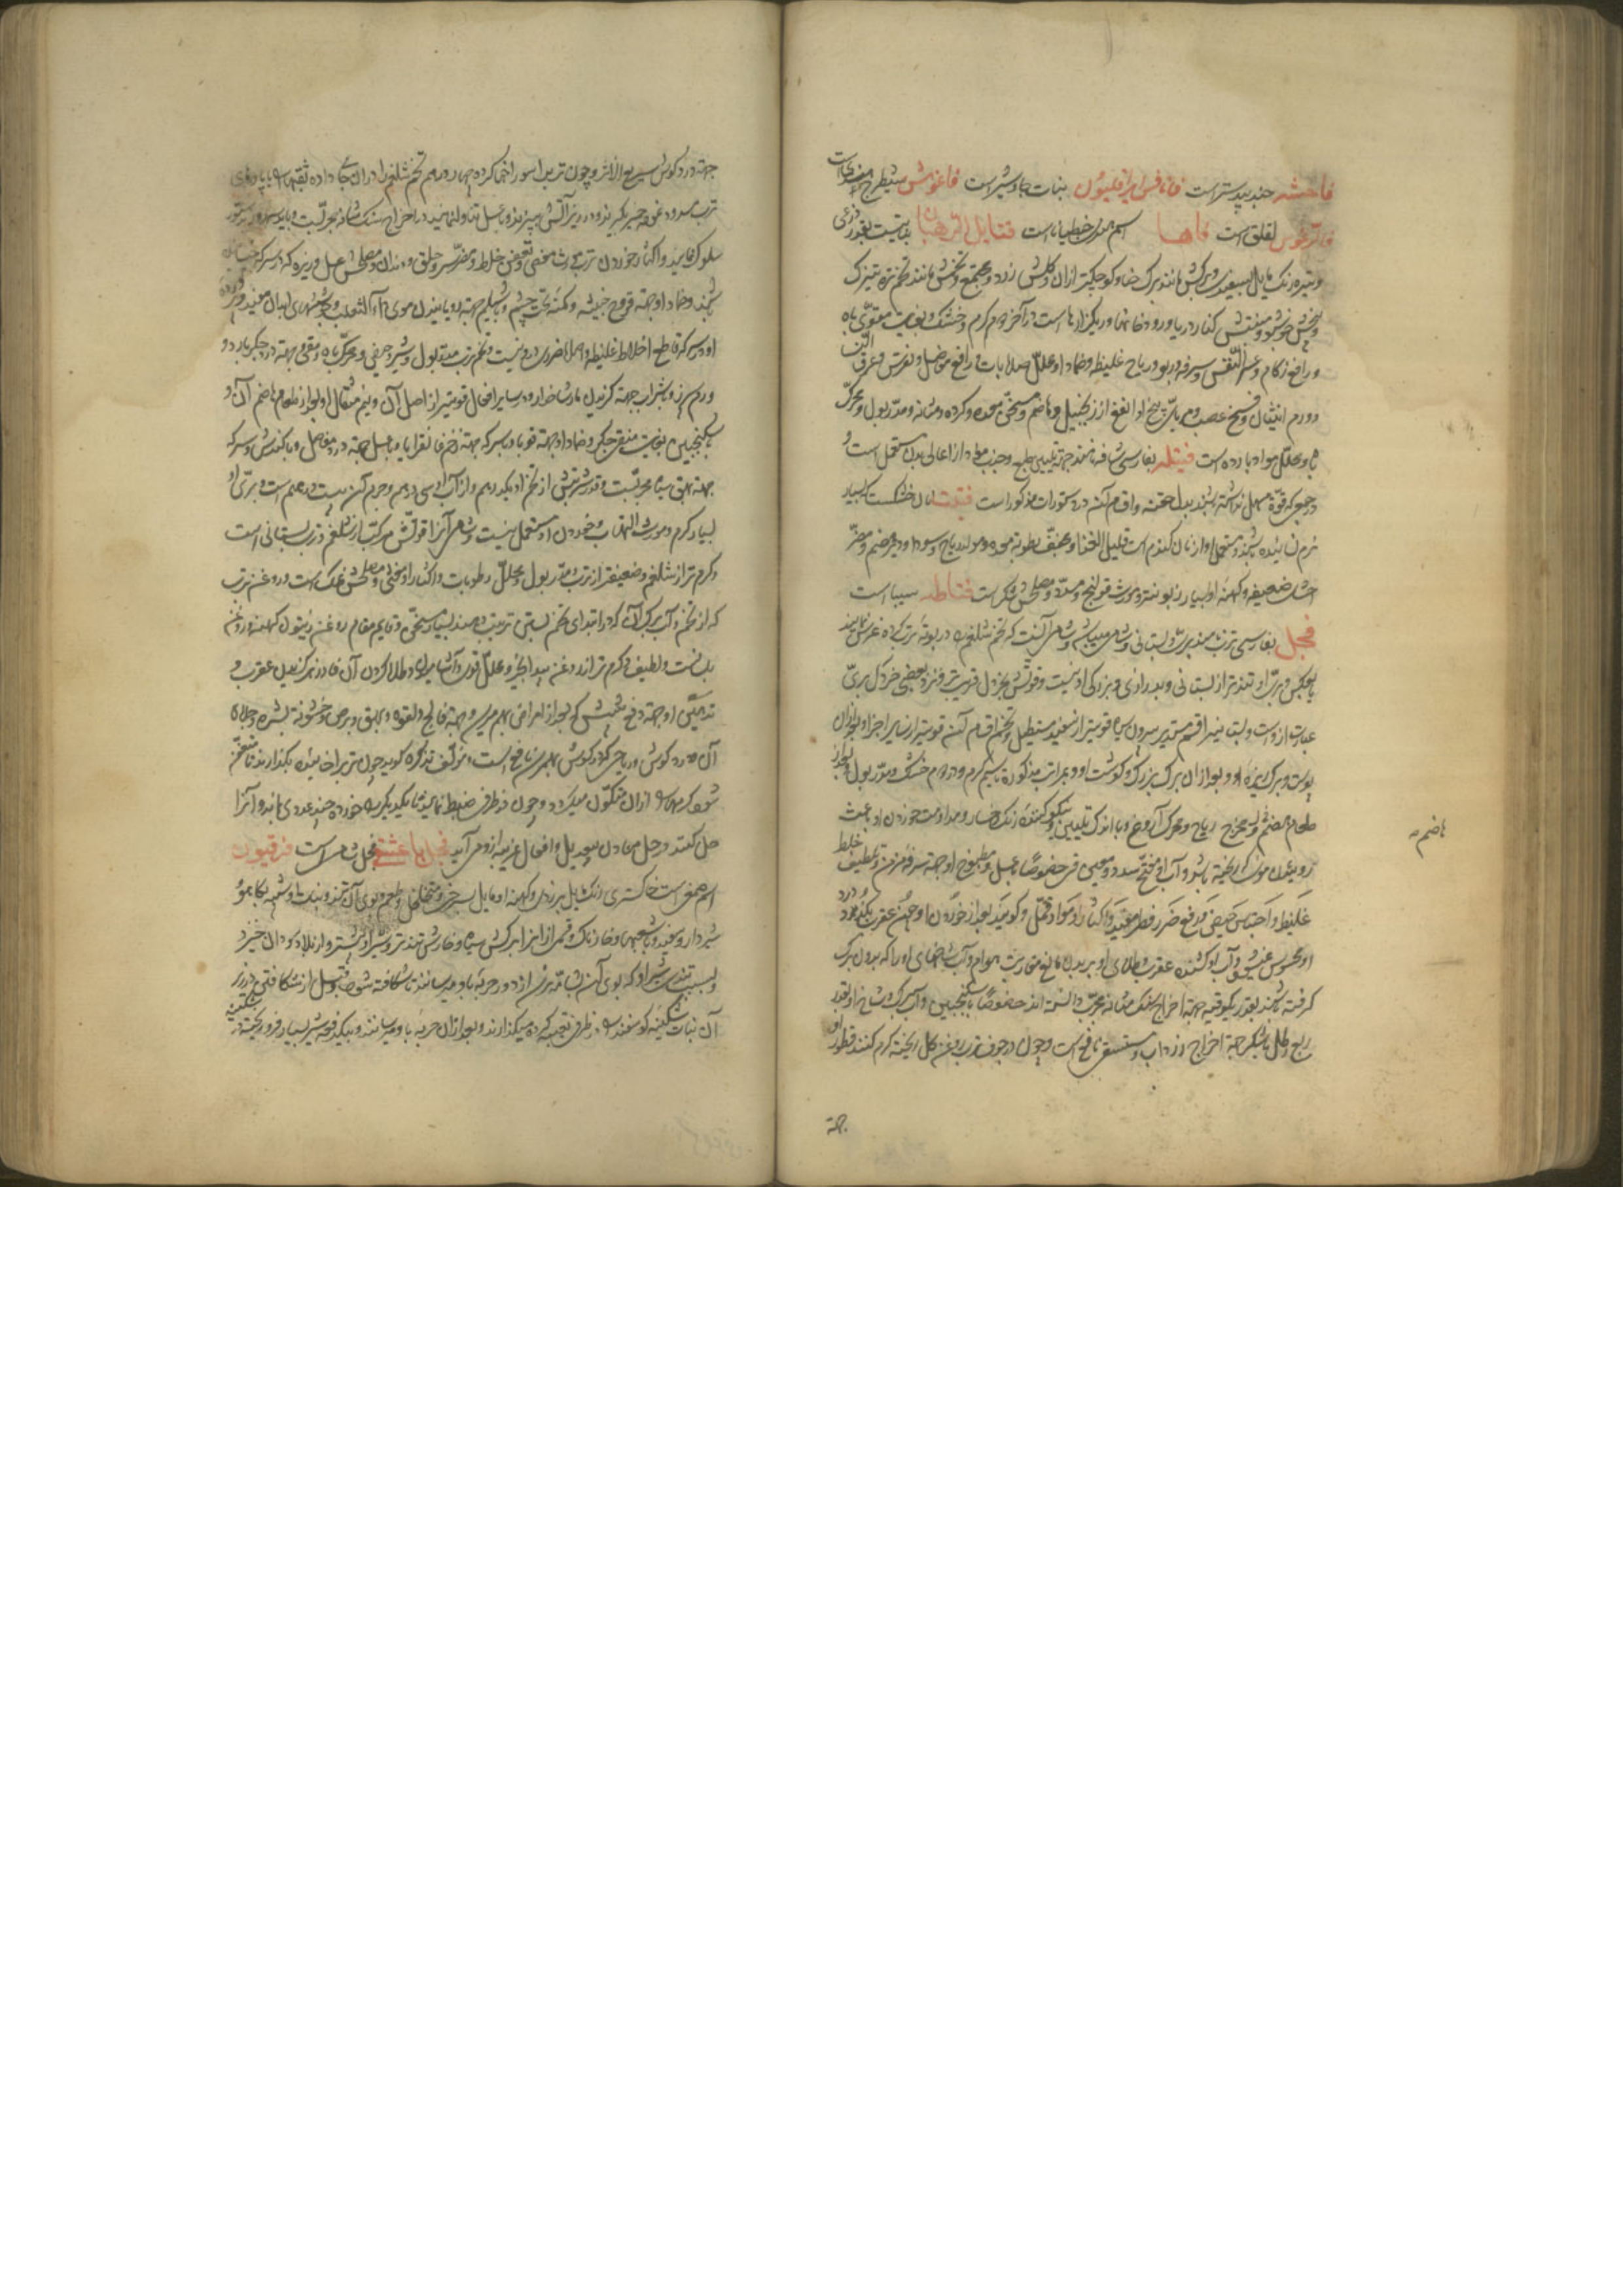 فاحشه جندبیدستر است فانافس ایرافلیون نبات جاوشیر است فاغوش شیطرج هندی است
لقلق است فاها اسم هندی خطیانا است فتایل الرهبان نباتیست بقدر ذرعی
و تیره رنگ مایل بسفیدی و برگش مانند برگ حنا و کوچکتر از ان و گلش زرد و مجتمع و تخمش مانند تخم تره تیزک
کنار دریا و رودخانها و ریگزارها است در آخر دوم گرم و خشک و بغایت مقوی باه
و رافع زکام و عسر النفس و سرفه و ربو و ریاح غلیظه و ضماد او محلل صلابات و رافع مفاصل و نقرس و عرق النسا
و ورم انثیان و فسخ عصب و مربای بیخ او انفع از زنجبیل و هاضم و مسخن معده و کرده و مثانه و مدر بول و محرک
باه و محلل مواد بارده است فتیله بفارسی شافه نامند جهة تلیین طبع و جذب مواد از اعالی بدن مستعمل است و
بدل حقنه و اقسام آن در دستورات مذکور است فتیت نان خشک است که بسیار
نرم سائیده باشند و مستعمل او از نان گندم است قلیل الغذا و مجفف رطوبة معده و مولد ریاح و سودا و دیر هضم و مضر
احشاء ضعیفه و کهنه او بسیار زبون تر و مورث قولنج و سدد و مصلحش شکر است فتاطه سیبا است
فجل بفارسی ترب نامند بری و بستانی و شامی میباشد و شامی آنست که تخم شلغم را در بوته ترب کرده غرس نمایند
یا بعکس و بری او تندتر از بستانی و بدرازی و بزرگی او نیست و قوتش بخردل قریب تر و نزد بعضی خردل بری
عبارت از وست و بستانی را قسم مستدیر بیرون سیاه قویتر از سفید مستطیل و تخم اقسام آن قویتر از سایر اجزا و بعد از ان
پوست و برگ ریزه او و بعد از ان برگ بزرگ و گوشت او و بمراتب مذکوره تا سیم گرم و در دوم خشک و مدر بول و بعد از
طعام مهضم و مخرج ریاح و محرک آروغ و با اندک تلیین و نیکو کننده رنگ رخسار و مداومت خوردن او باعث
روئیدن موی ریخته باشد و آب او مفتح سدد و معین قی خصوصاً با عسل و مطبوخ او جهة سرفه مزمن و تلطیف خلط
غلیظ و احتباس حیض و رفع ضرر فطر مفید و اکثار او مولد قمل و گویند بعد از خوردن او چون عقرب بگزد درد
او محسوس نمیشود و آب او کشنده عقرب و طلای او بر بدن مانع مقاربت هوام و آب شاخهای او را که بدون برگ
گرفته باشند بقدر یکوقیه جهة اخراج سنگ مثانه مجرب دانسته اند خصوصاً با سکنجبین و آب برگ و شاخ او بقدر
ربع رطل با شکر جهة اخراج زرداب و مستسقی نافع است و چون در جوف ترب روغن گل ریخته گرم کنند قطور او
هاضم
جهة
جهة درد گوش سریع الاثر و چون ترب را سوراخ کرده چهار درهم تخم شلغم را در ان جای داده
ترب مسدود نموده خمیر بگیرند و در زیر آتش بپزند و با عسل تناول نمایند در اخراج سنگ مثانه مجربست و باید سه روز بدستور
سلوک نمایند و اکثار خوردن ترب مورث مغص و تعفن خلط و مضر سر و حلق و دندان و مصلحش عسل و زیره که در سرکه خیسانده
باشند و ضماد او جهة قروح خبیثه و کمنه تحت چشم و با شیلم جهة رویانیدن موی داء الثعلب و جوششهای ابدان مفید و تخم
او در سرکه قاطع اخلاط غلیظه و اصلا ضرر درو نیست و تخم ترب مدر بول و شیر و حیض و محرک باه و مقئ و جهة درد جگر بارد و
ورم سپرز و با شراب جهة گزیدن مار شاخدار و در سایر افعال قویتر از اصل آن و نیم مثقال او بعد از طعام هاضم آن و
با سکنجبین بغایت منقی جگر و ضماد او جهة قوبا و با سرکه جهة زخم غانقرایا و با عسل جهة درد مفاصل و با کندش و سرکه
جهة بهق سیاه مجربست و قدر شربتش از تخم او یکدرهم و از آب او سی درهم و جرم آن بیست درهم است و بری او
بسیار گرم و مورث التهاب و خوردن او مستعمل نیست و شامی آن را قوتش مرکب از شلغم و ترب بستانی است
و گرم تر از شلغم و ضعیفتر از ترب و مدر بول و محلل رطوبات و اکثار او مغثی و مصلحش نمک است و روغن ترب
که از تخم و آب برگ آن که در ابتدای تخم بستن ترتیب دهند بسیار مسخن و قایم مقام روغن زیتون کهنه و روغن
بلسانست و لطیف و گرم تر از روغن بیدانجیر و محلل قوی و آشامیدن و طلا کردن آن فادزهر گزیدن عقرب و
تدهین او جهة دفع شپش که بعد از امراض بهم رسد و جهة فالج و لقوه و بهق و برص و خشونة بشره و جلاء
آن و درد گوش و ریاحی که در گوش بهم رسد نافع است مؤلف تذکره گوید چون ترب را خائیده بگذارند تا متعفن
شود کرمها از ان متکون میگردد و چون در ظرفی ضبط نمایند تا یکدیگر را خورده چند عددی بماند و آنرا
حل کنند در حل معادن بیعدیل و افعال غریبه ازو می آید فجل بالعشتی فجل شامی است فرفیون
اسم صمغی است خاکستری رنگ مایل بزردی و کهنه او مایل بسرخی و متخلخل و طعم و بوی آن تند و نبات او شبیه بکاهو
شیردار و سفید و با شعبها و خارناک و قسمی از انرا برگش سیاه و خارش تندتر و شیر او بیشتر و از بلاد سودان خیزد
و بسبب تندی شیر او که بوی آن بشامه نرسد از دور حربه باو میرسانند تا شکافته شود و قبل از شکافتن در زیر
آن نبات شکنبه گوسفند و ظرفی تعبیه کرده میگذارند و بعد از ان حربه باو میرسانند و بیکدفعه شیر بسیار فرو ریخته در شکنبه